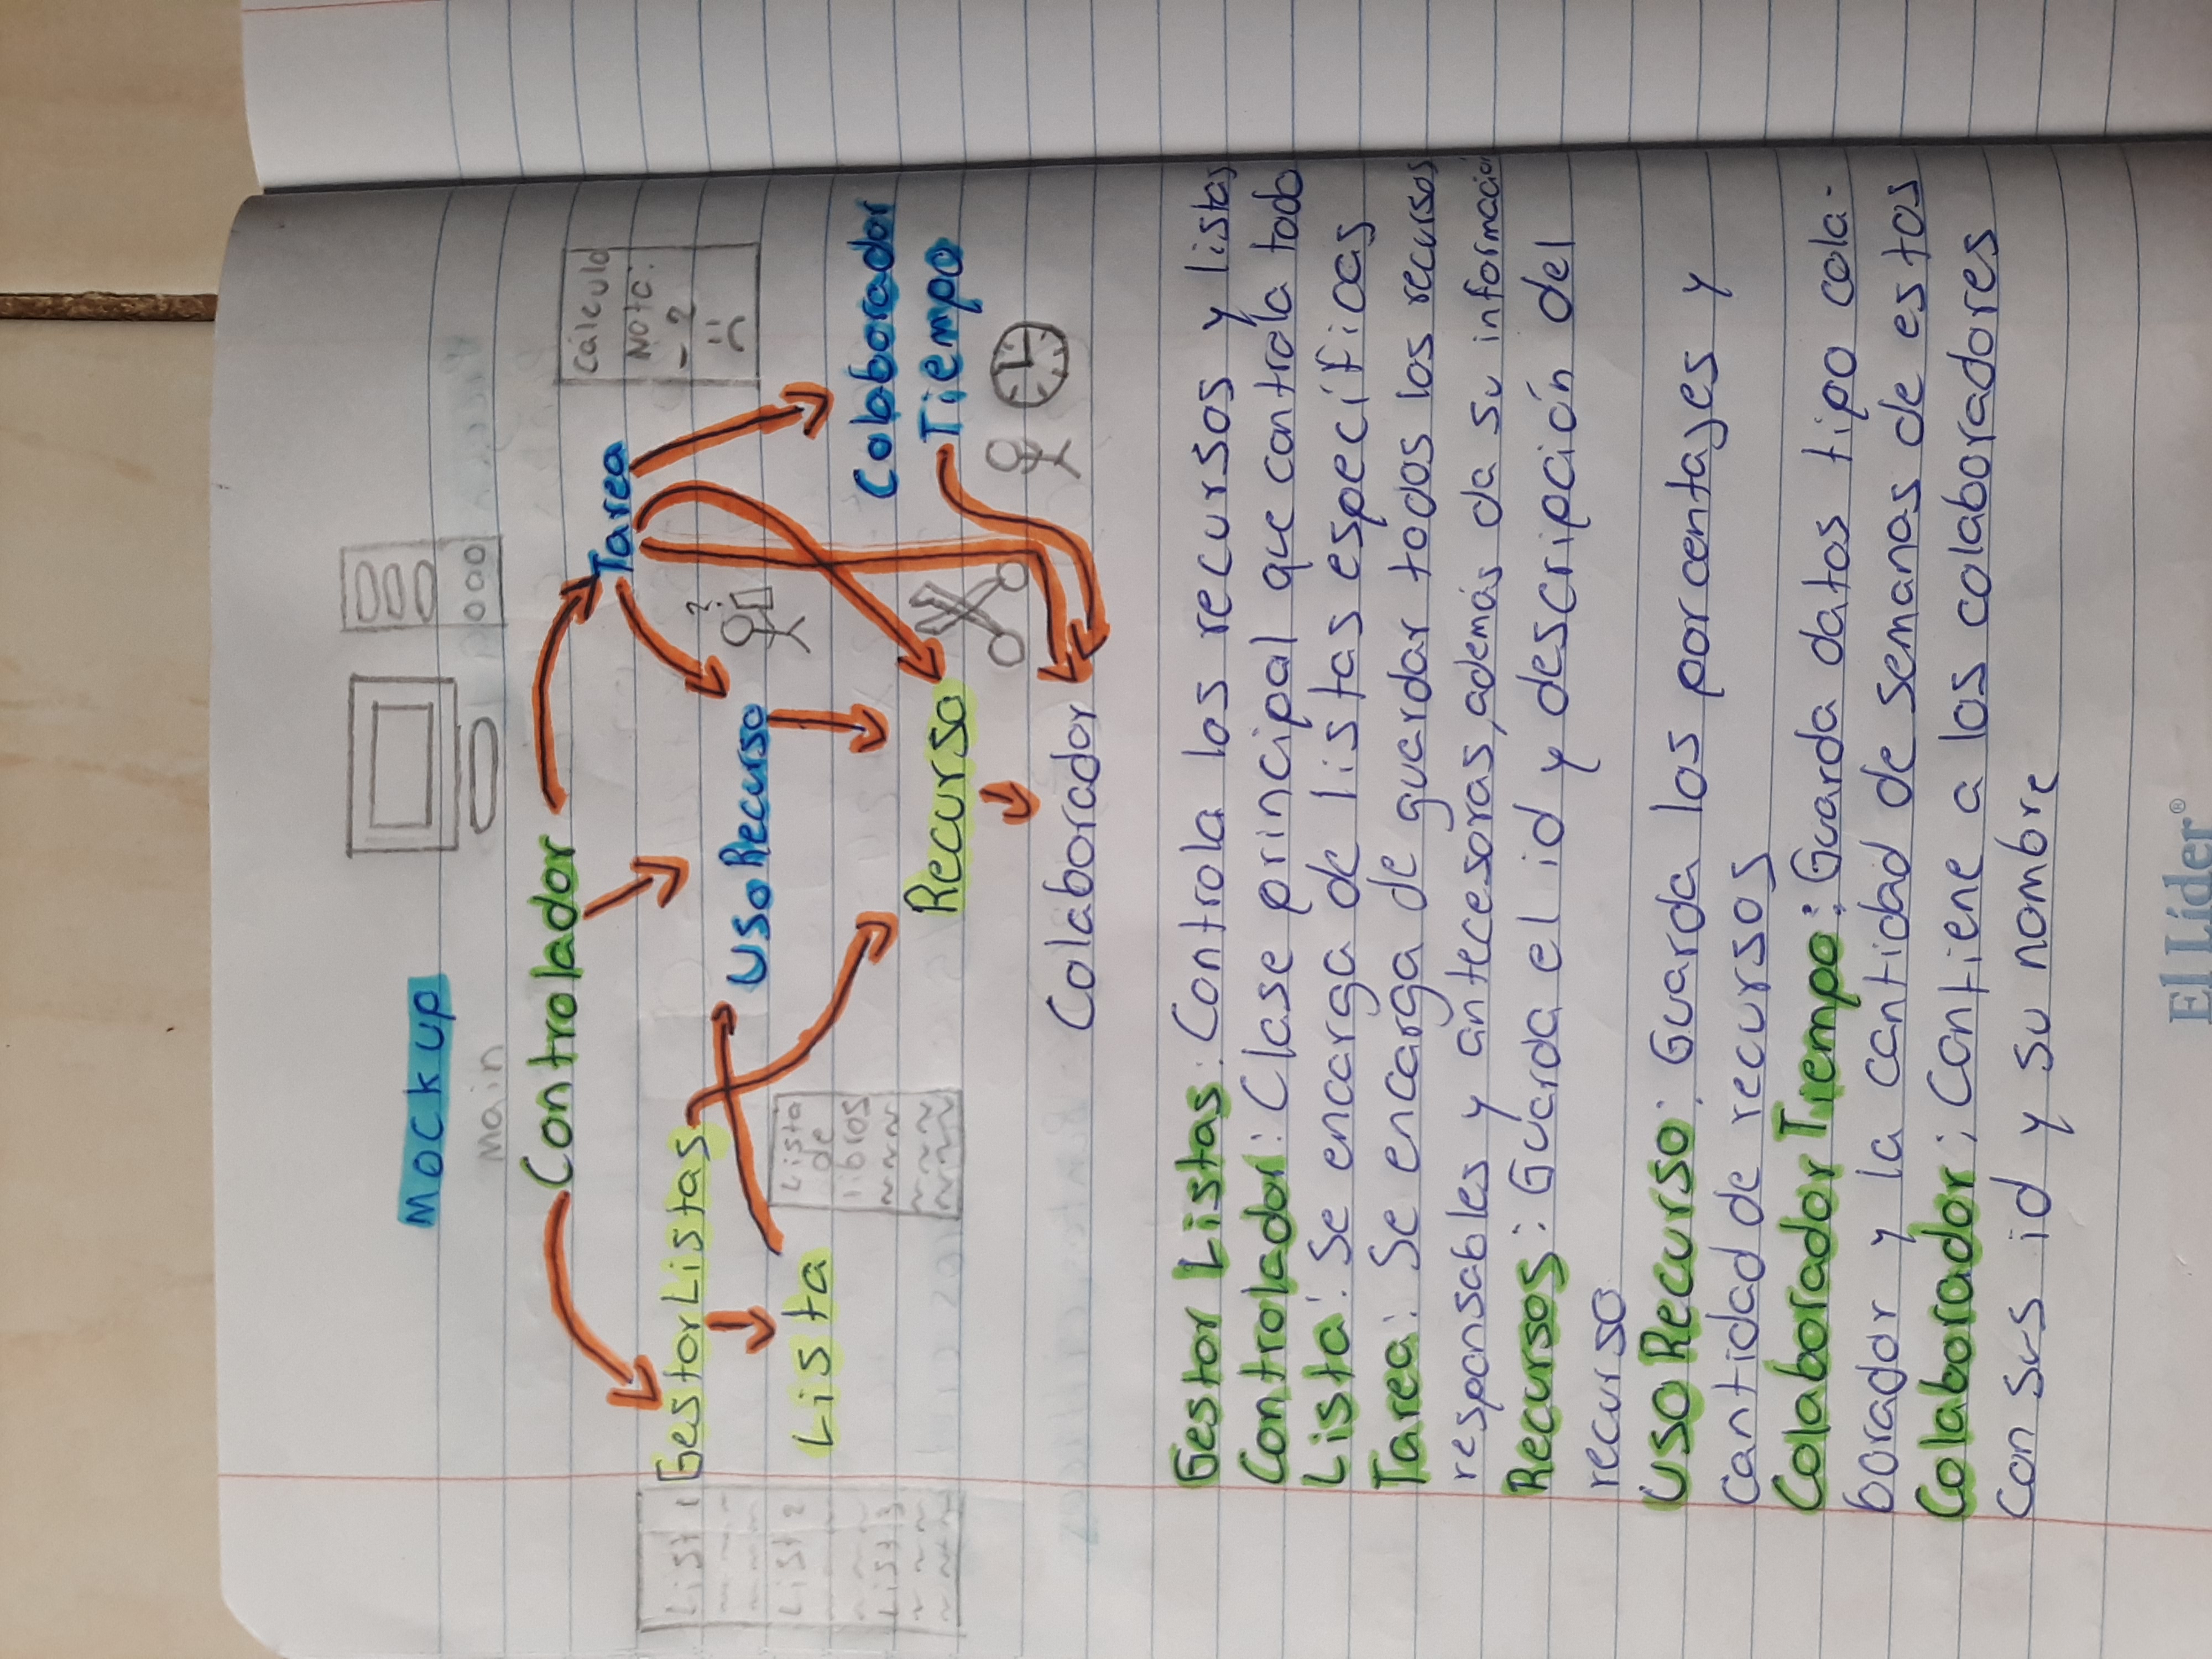 Mockup
main
Controlador
Tarea
Cálculo
Nota:
- 2
List 1
GestorListas
?
UsoRecurso
List 2
Lista
Lista
de
libros
List 3
Colaborador
Tiempo
Recurso
Colaborador
Gestor Listas: Controla los recursos y listas
Controlador: Clase principal que controla todo
Lista: Se encarga de listas específicas
Tarea: Se encarga de guardar todos los recursos
responsables y antecesoras, además da su información
Recursos: Guarda el id y descripción del
recurso
Uso Recurso: Guarda los porcentajes y
cantidad de recursos
Colaborador Tiempo: Guarda datos tipo cola-
borador y la cantidad de semanas de estos
Colaborador: Contiene a los colaboradores
con sus id y su nombre
El Líder®